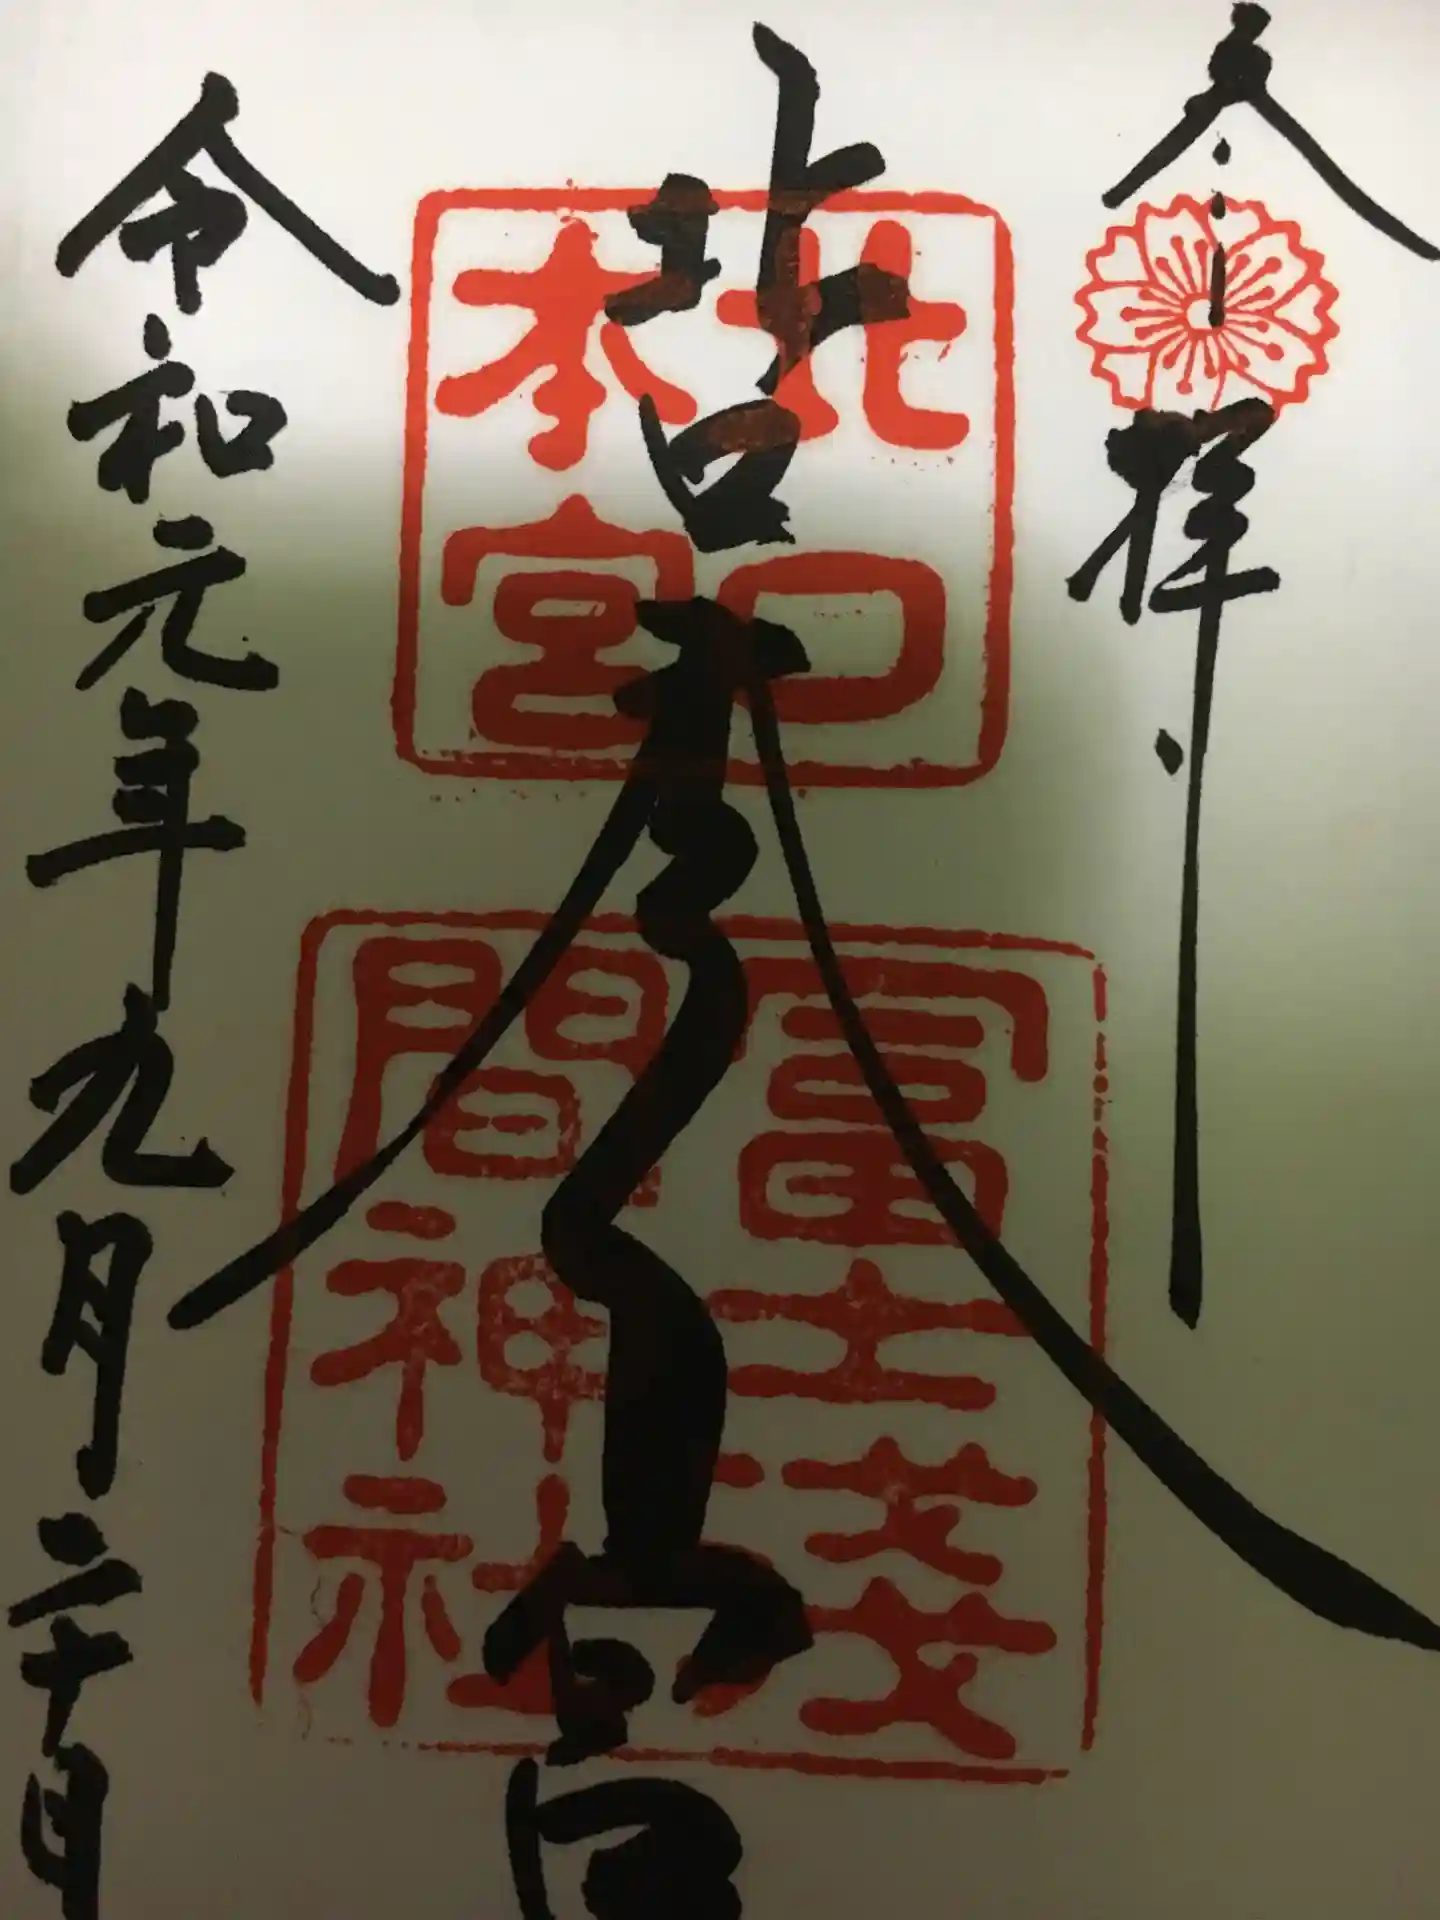 奉拝
北口本宮
北口
本宮
冨士浅
間神社
令和元年九月二十日